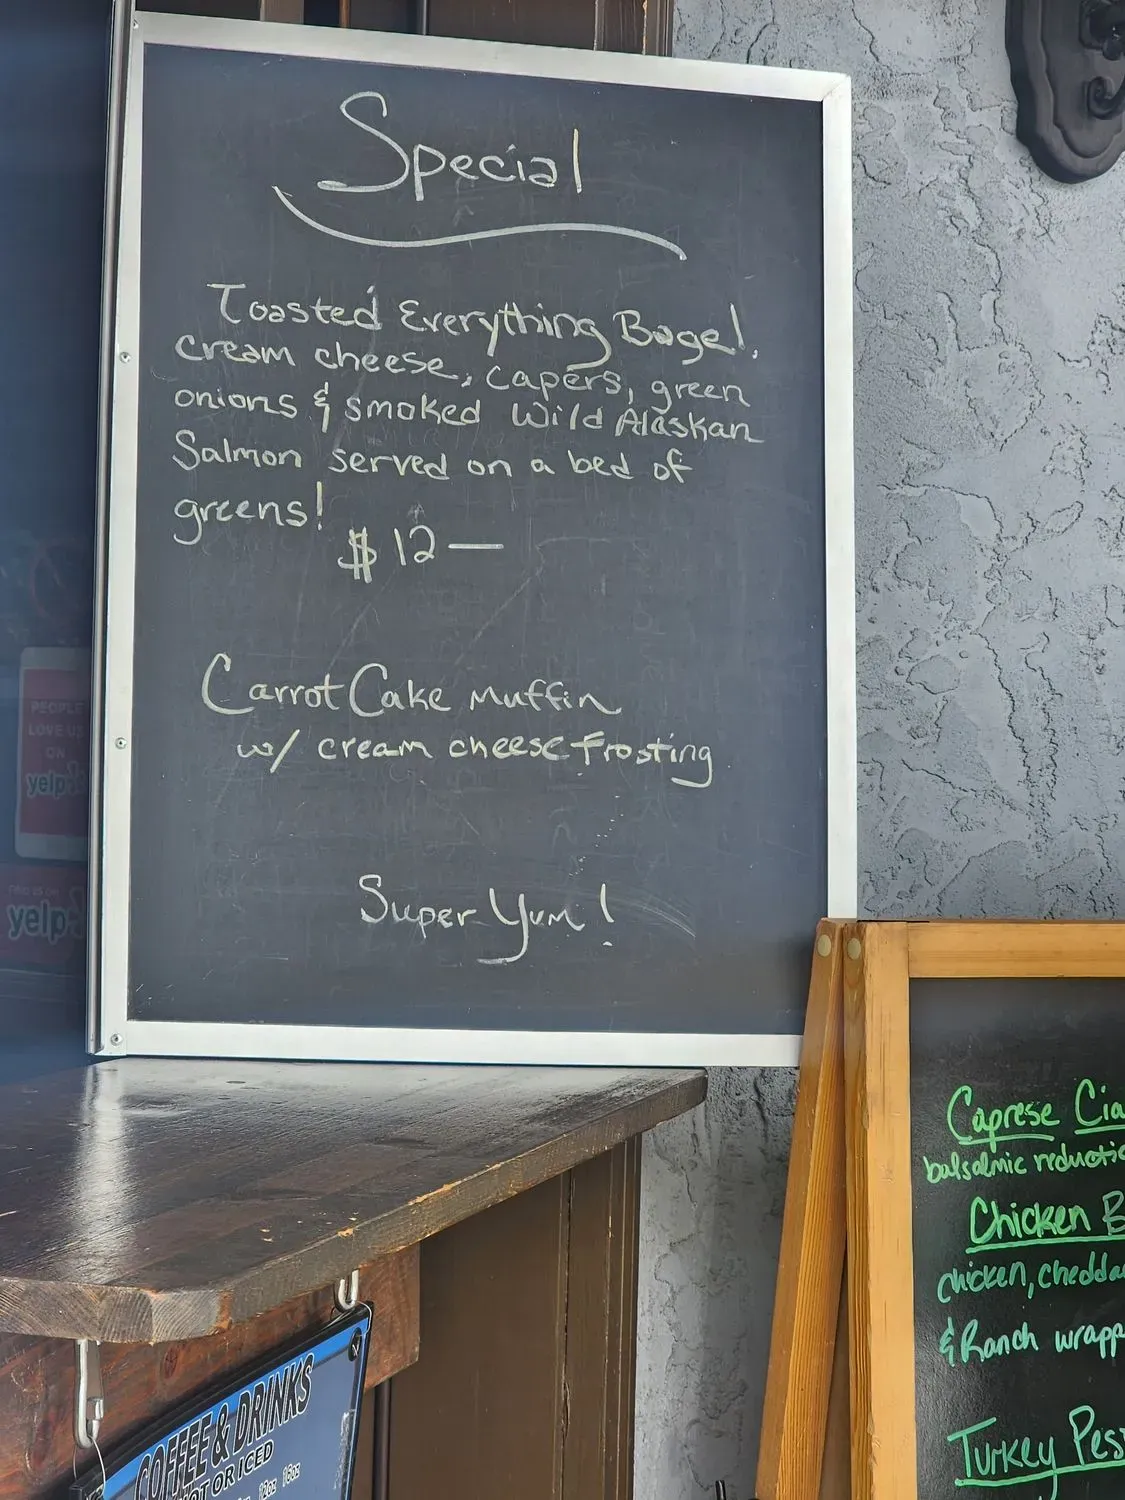 Special
Toasted Everything Bagel,
cream cheese, capers, green
onions & smoked Wild Alaskan
Salmon served on a bed of
greens!
$12—
Carrot Cake muffin
w/ cream cheese frosting
Super Yum!
PEOPLE
LOVE US
ON
yelp
FIND US ON
yelp
Caprese Cia
balsalmic reductio
Chicken B
chicken, chedda
& Ranch wrapp
Turkey Pes
COFFEE & DRINKS
HOT OR ICED
12oz 16oz